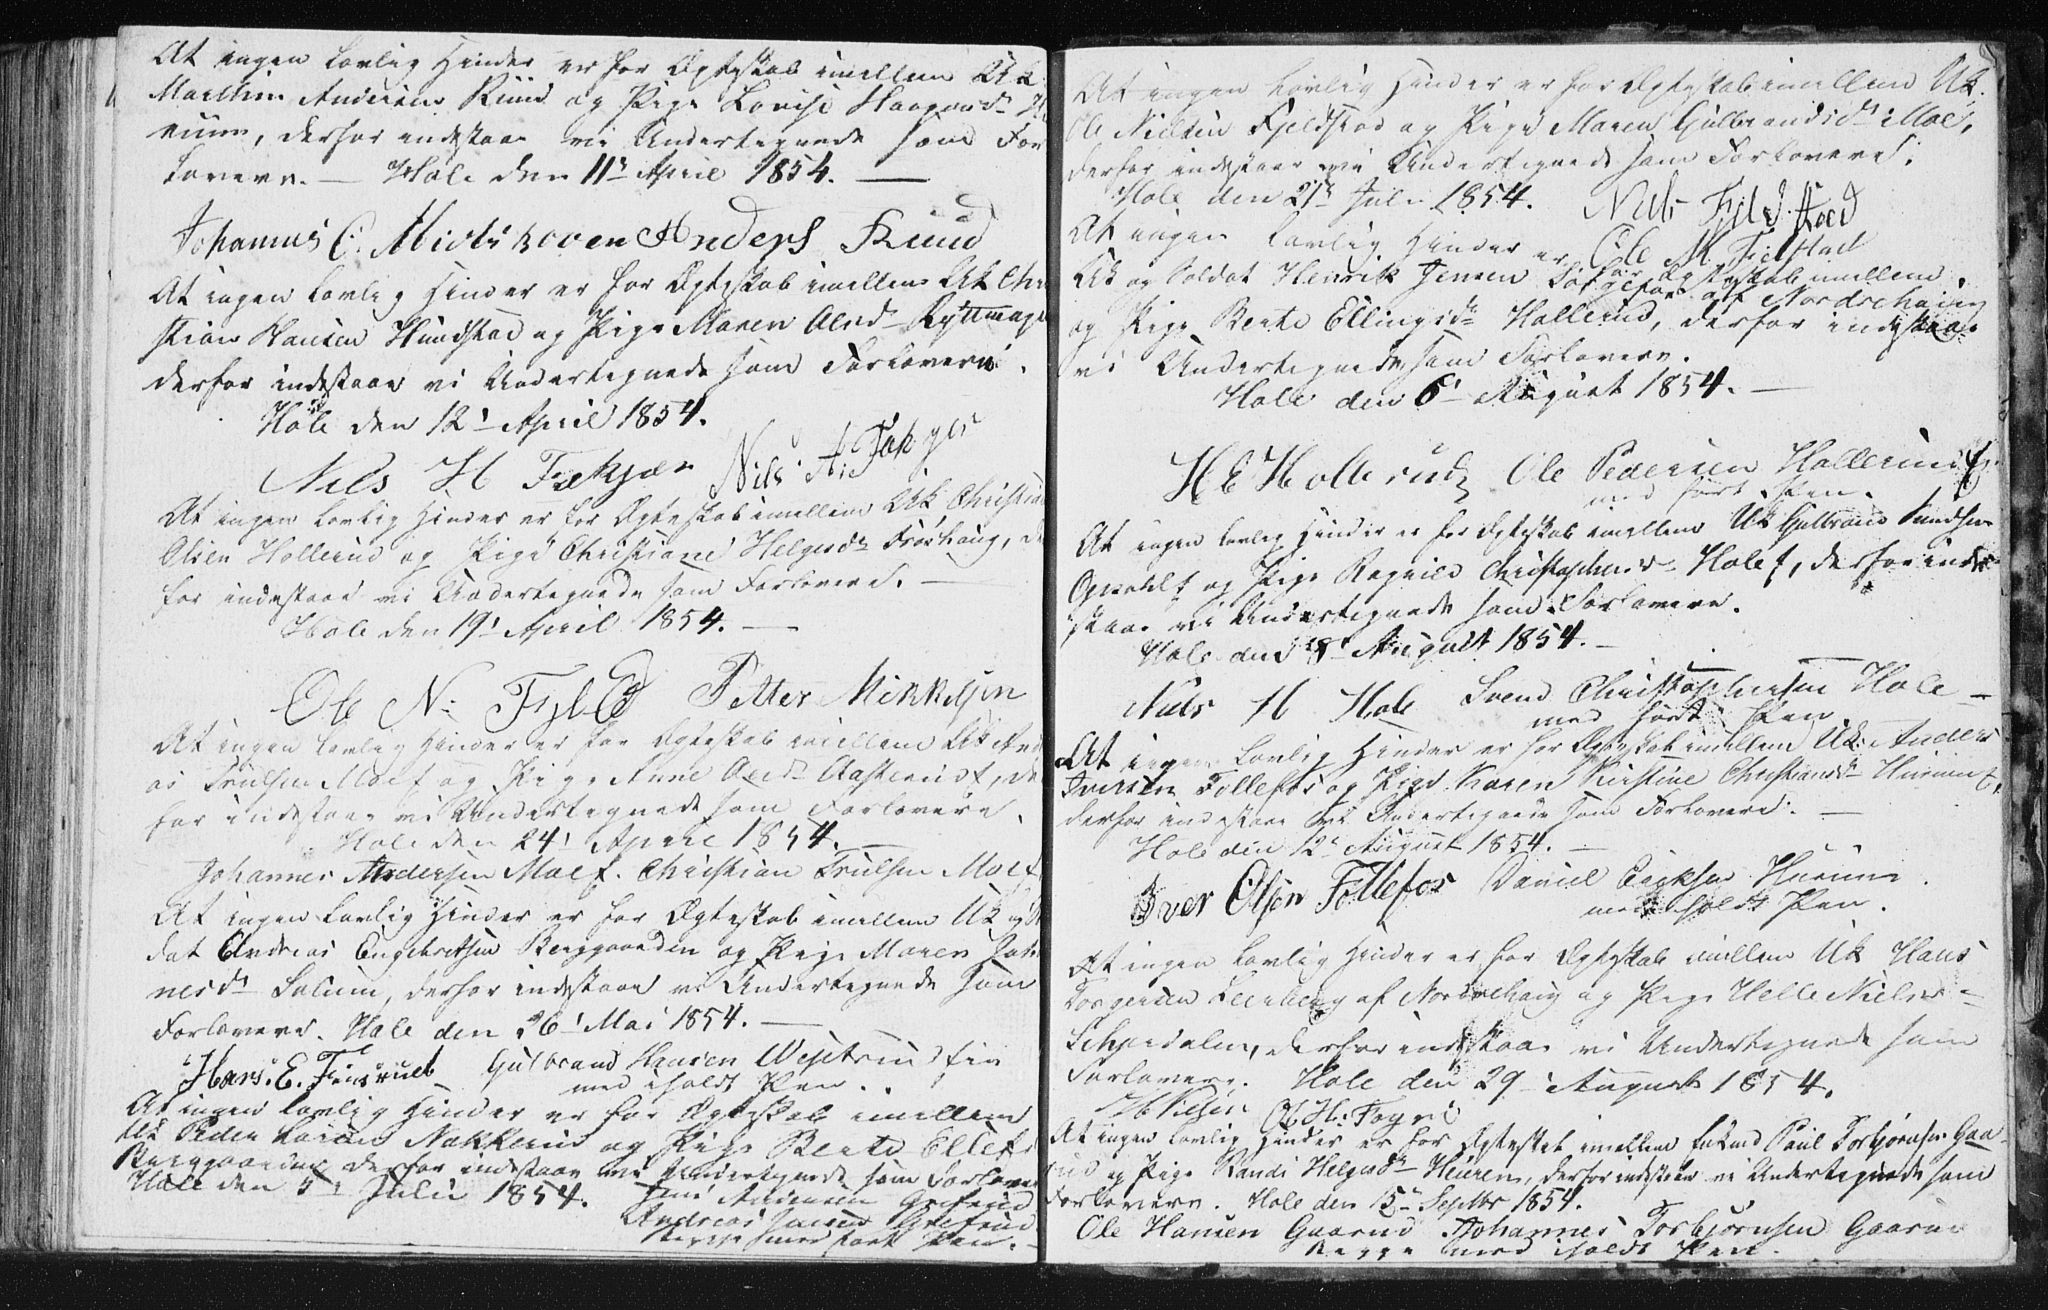 At ingen lovlig Hinder er for Ægteskab imellem Uk
Marthin Andersen Ruud og Pige Lovise Haagensd
viim, derfor indestaae vi Undertegnede som For
lovere. — Hole den 11te April 1854. —
Johannes C. Anders Ruud
At ingen lovlig Hinder er for Ægteskab imellem Uk Chri
stian Hansen Hundstad og Pige Maren Olsd Ryttmager
derfor indestaae vi Undertegnede som Forlovere.
Hole den 12 April 1854.
Nils H Fækjær Nils A.
At ingen lovlig Hinder er for Ægteskab imellem Uk Christian
Olsen Hollerud og Pige Christiane Helgesd Frøshaug, de
for indestaae vi Undertegnede som Forlovere. —
Hole den 19 April 1854. —
Ole N. Fjeld Petter Mikkelsen
At ingen lovlig Hinder er for Ægteskab imellem Uk And
as Truelsen Moe og Pige Anne Aasterud, de
for indestaae vi Undertegnede som Forlovere.
Hole den 24 April 1854. —
Johannes Andersen Moe. Christian Truelsen Moe
At ingen lovlig Hinder er for Ægteskab imellem Uk og Sol
dat Andreas Engebretsen Berggaarden og Pige Maren Johan
nesd Solum, derfor indestaae vi Undertegnede som
Forlovere. Hole den 26 Mai 1854. —
Hans. E. Finsrud Gulbrand Hansen Westrud
med iholdt Pen.
At ingen lovlig Hinder er for Ægteskab imellem
Uk Peder Larsen Nakkerud og Pige Berte Ellefs
Berggaarden derfor indestaae vi Undertegnede som Forlovere
Hole den 5 Juli 1854. Jens Andersen Grefsrud
Andreas Jensen Grefsrud
Begge med ført Pen.
At ingen lovlig Hinder er for Ægteskab imellem Uk.
Ole Nielsen Fjeldstad og Pige Maren Gulbrandsd Moe,
derfor indestaae vi Undertegnede som Forlovere.
Hole den 21 Juli 1854. Niels Fjeldstad
At ingen lovlig Hinder er Ole N. Fjelstad
for Ægteskab imellem
Uk og Soldat Henrik Jensen af Nordrehaug
og Pige Berte Ellingsd Hollerud, derfor indestaae
vi Undertegnede som Forlovere.
Hole den 6 August 1854. —
H E Hollerud Ole Pedersen Hollerud
med ført Pen.
At ingen lovlig Hinder er for Ægteskab imellem Uk Gulbrand Knudsen
Opsahl og Pige Ragnild Christophersd Hole, derfor inde
staae vi Undertegnede som Forlovere.
Hole den 8 August 1854. —
Niels H Hole Svend Christophersen Hole —
med ført Pen.
At ingen lovlig Hinder er for Ægteskab imellem Uk. Anders
Iversen Follefos og Pige Karen Kirstine Christiansd Hurum
derfor indestaae vi Undertegnede som Forlovere. —
Hole den 12 August 1854. —
Iver Olsen Follefos Daniel Ericksen Hurum.
med iholdt Pen.
At ingen lovlig Hinder er for Ægteskab imellem Uk Hans
Torgersen af Nordrehaug og Pige Helle Nielsd
Schjerdalen, derfor indestaae vi Undertegnede som
Forlovere. Hole den 29 August 1854.
H Nilsen Ol. H.
At ingen lovlig Hinder er for Ægteskab imellem Paul Torbjørnsen Gaa
rud og Pige Randi Helgesd Heieren, derfor indestaae vi Undertegnede som
Forlovere. Hole den 15 Septbr 1854.
Ole Hansen Gaarud Johannes Torbjørnsen Gaarud
Begge med iholdt Pen.